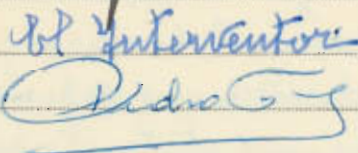 El Interventor
Pedro G